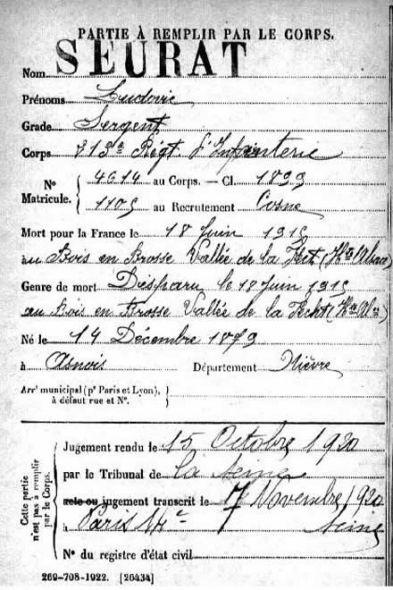 PARTIE À REMPLIR PAR LE CORPS.
SEURAT
Nom
Prénoms Ludovic
Grade Sergent
Corps 313e Régt. d'Infanterie
No 4614 au Corps. — Cl. 1899
Matricule. 1105 au Recrutement Cosne
Mort pour la France le 18 Juin 1915
au Bois en Brosse Vallée de la Fecht (Hte Alsace)
Genre de mort Disparu le 18 Juin 1915
au Bois en Brosse Vallée de la Fecht (Hte Als)
Né le 14 Décembre 1879
à Asnois Département Nièvre
Arrt municipal (pr Paris et Lyon),
à défaut rue et No.
Cette partie n'est pas à remplir par le Corps.
Jugement rendu le 15 Octobre 1920
par le Tribunal de la Seine
acte ou jugement transcrit le Novembre 1920
à Paris 14e Seine
No du registre d'état civil
269-708-1922. [26434]